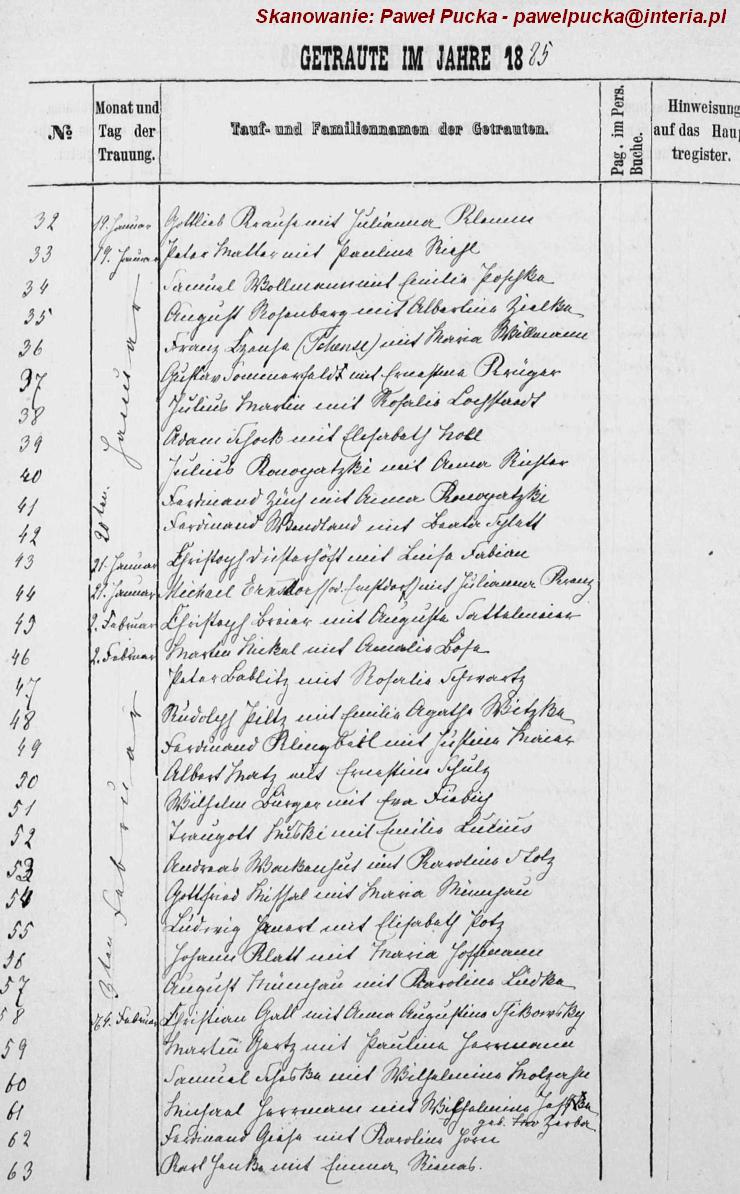 Skanowanie: Paweł Pucka - pawelpucka@interia.pl
GETRAUTE IM JAHRE 1885
№
Monat und Tag der Trauung.
Tauf- und Familiennamen der Getrauten.
Pag. im Pers. Buche.
Hinweisung auf das Haup tregister.
32 19. Januar Gottlieb Krause mit Julianna Klemm
33 19. Januar Peter Matter mit Paulina Riehl
34 Samuel Wollmann mit Emilie Poschke
35 August Rosenberg mit Albertine Zielke
36 Franz (Schense) mit Maria Willmann
37 Gustav Sommerfeldt mit Ernestine Krüger
38 Julius Martin mit Rosalie Lochstaedt
39 Adam Schock mit Elisabeth Noll
40 Julius Konopatzki mit Anna Richter
41 Ferdinand mit Anna Konopatzki
20ten Januar
42 Ferdinand Wendland mit Beata Schlatt
43 21. Januar Christoph Diesterhöft mit Luise Fabian
44 21. Januar Michael Ernsdorf (od. Ernstdorf) mit Julianna Kranz
45 2. Februar Christoph Breier mit Auguste Sattelmeier
46 2. Februar Martin Nickel mit Amalie Bose
47 Peter Bablitz mit Rosalie Schwartz
48 Rudolph Piltz mit Emilie Agathe Witzke
49 Ferdinand Klingbeil mit Justine Maier
50 Albert Matz mit Ernestine Schulz
51 Wilhelm Bürger mit Eva Fiebich
52 Traugott mit Emilie Lucius
53 Andreas Wackenhut mit Karoline Stolz
54 Gottfried Missal mit Maria Münchau
55 Ludwig mit Elisabeth Potz
56 Johann Klatt mit Maria Hoffmann
57 August Münchau mit Karoline Lüdke
3ten Februar
58 4. Februar Christian Gatt mit Anna Augustine Schikowsky
59 Martin Gertz mit Pauline Herrmann
60 Samuel Scheske mit Wilhelmine Molzahn
61 Michael Herrmann mit Wilhelmine Jeschke
geb. Zerbe
62 Ferdinand Giese mit Karoline Horn
63 Karl Henke mit Emma Rienas.